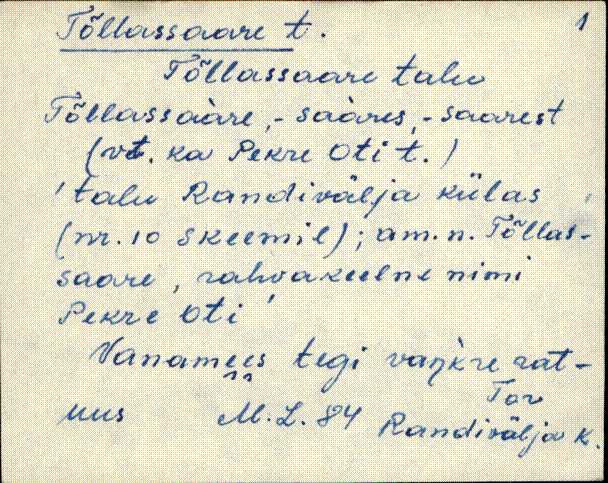 1
Tõllassaare t.
Tõllassaare talu
Tõllassàare, -sàares, -saarest
(vt. ka Pekre Oti t.)
'talu Randivälja külas
(nr. 10 skeemil); am. n. Tõllas-
saare, rahvakeelne nimi
Pekre Oti'
Vanamees tegi vaŋkre rat-
uus M. L. 84 Tor
Randivälja k.